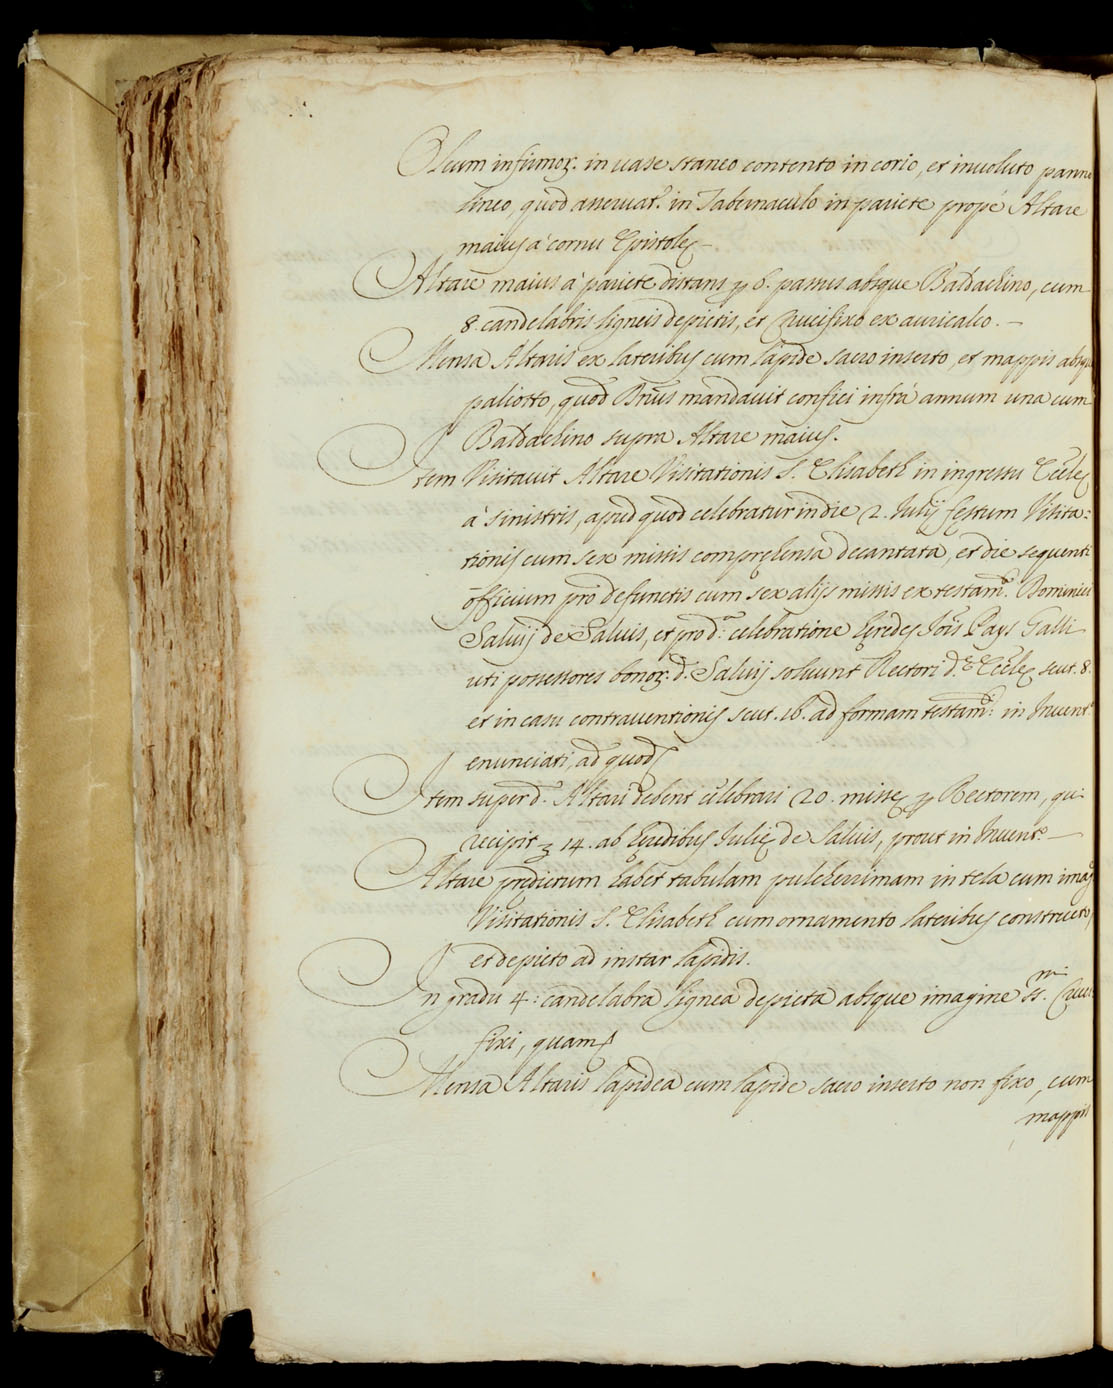 Oleum infirmoꝝ. in uase staneo contento in corio, et inuoluto panno
lineo, quod asseruat.ʳ in Tabernaculo in pariete propè Altare
maius à cornu Epistolę –
Altare maius à pariete distans ꝑ 6. passus absque Baldachino, cum
8. candelabris ligneis depictis, et Crucifixo ex auricalco. –
Mensa Altaris ex lateribus cum lapide sacro inserto, et mappis absque
paliotto, quod Rm̃us mandauit confici infrà annum una cum
Baldachino supra Altare maius.
Item Visitauit Altare Visitationis S. Elisabeth in ingressu Eccl̃ę
à sinistris, apud quod celebratur in die 2. Iulij festum Visita:
tionis cum sex missis comprehensa decantata, et die sequenti
officium pro defunctis cum sex alijs missis ex testam.ᵗᵒ Dominici
Saluij de Saluis, et pro d.ᵃ celebratione hęredes Io͂is Pays Galli
uti possessores bonoꝝ. d. Saluij soluunt Rectori d.ᵉ Eccl̃ę scut. 8.
et in casu contrauentionis scut. 16. ad formam testam.ᵗⁱ in Inuent.º
enunciati, ad quod
Item super d.º Altari debent celebrari 20. missę ꝑ Rectorem, qui
recipit 14. ab hęredibus Iulię de Saluis, prout in Inuent.º –
Altare prędictum habet tabulam pulcherrimam in tela cum imag.
Visitationis S. Elisabeth cum ornamento lateribus constructo,
et depicto ad instar lapidis.
In gradu 4: candelabra lignea depicta absque imagine SS.ᵐⁱ Cruci:
fixi, quam
Mensa Altaris lapidea cum lapide sacro inserto non fixo, cum
mappis